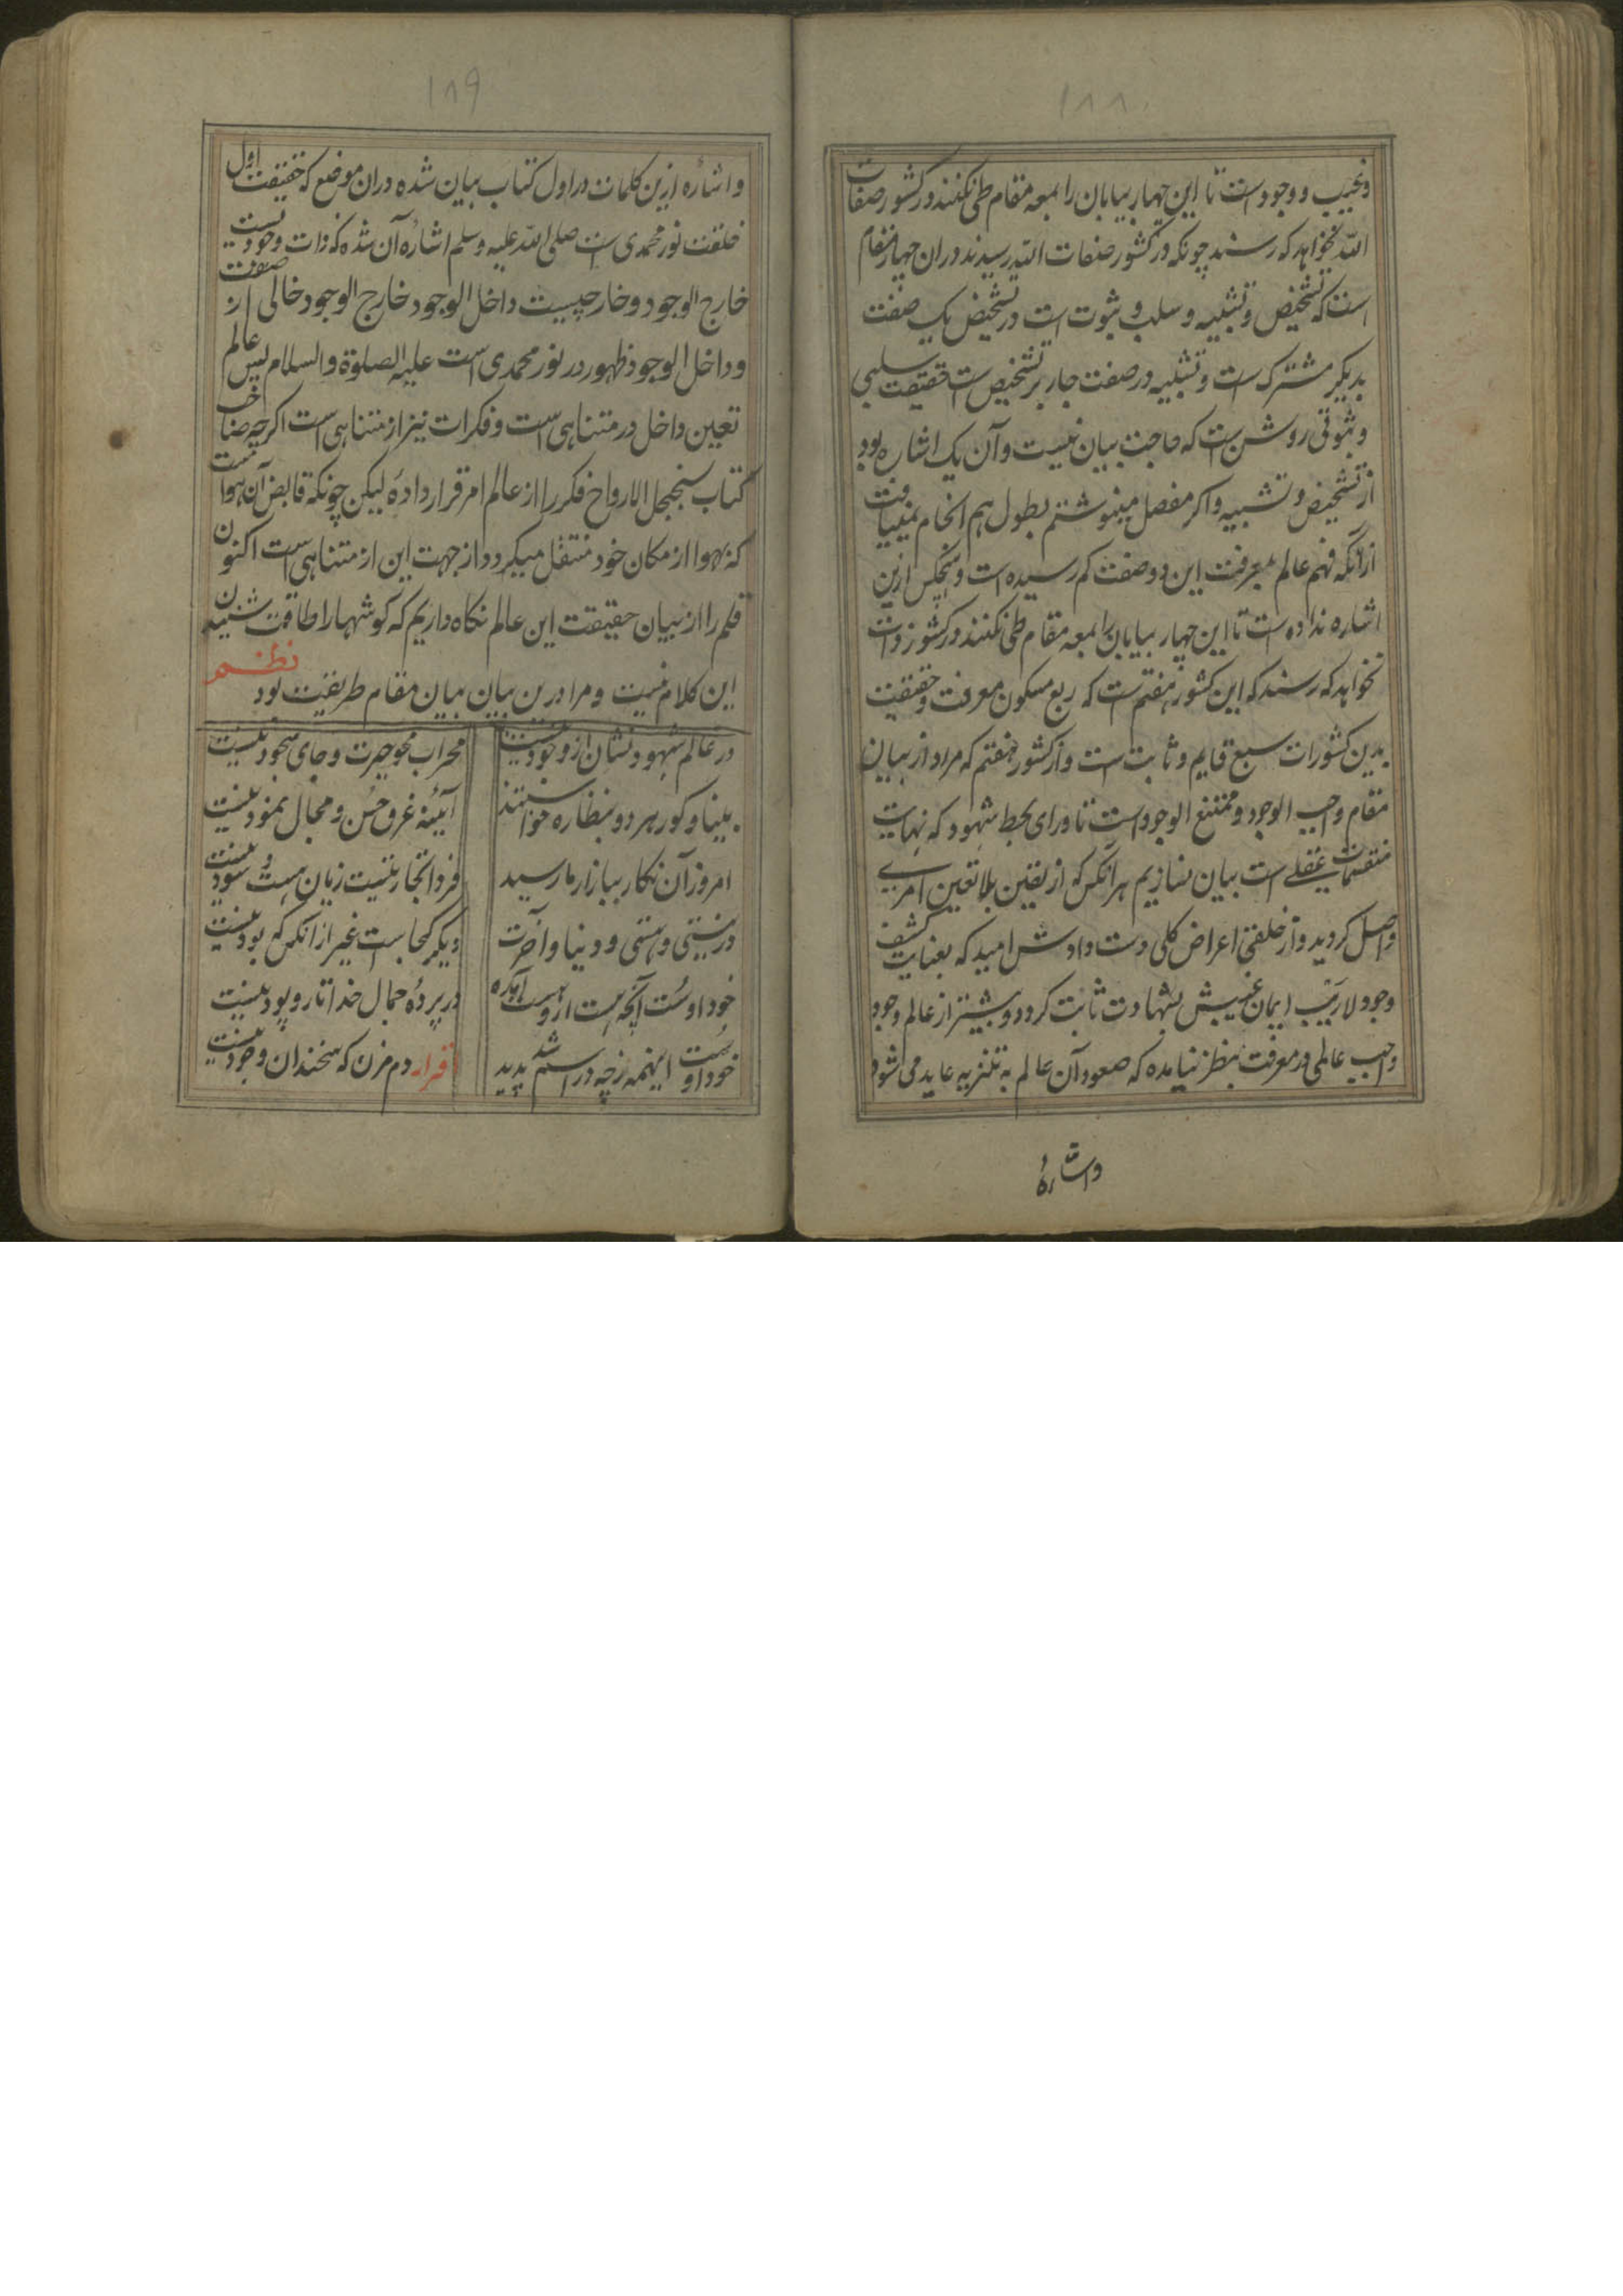 ۱۸۸
وغیب و وجود است تا این چهار بیابان را بمعه مقام طی نکنند در کشور صفات
الله نخواهد که رسند چونکه در کشور صفات الله رسیدند دران چهار مقام
است که تشخیص و تشبیه و سلب و ثبوت است در تشخیص یک صفت
بدیگر مشترک است و تشبیه در صفت جار بر تشخیص است حقیقت سلبی
و ثبوتی روشن است که حاجت بیان نیست و آن یک اشاره بود
از تشخیص و تشبیه و اکر مفصل مینوشتم بطول هم انجام نمییافت
ازانکه فهم عالم بمعرفت این دو صفت کم رسیده است و هیچکس ازین
اشاره نداده است تا این چهار بیابان را بمعه مقام طی نکنند در کشور ذات
نخواهد که رسند که این کشور هفتم است که ربع مسکون معرفت و حقیقت
بدین کشورات سبع قایم و ثابت است و از کشور هفتم که مراد از بیان
مقام واجب الوجود و ممتنع الوجود است تا ورای محیط شهود که نهایت
منقسمات عقلی است بیان سازیم هر آنکس که از یقین بلا تعین امری
واصل کردید و از خلقتی اعراض کلی دست دادش امید که بعنایت کشف
وجود لاریب ایمان غیبش بشهادت ثابت کردد و بیشتر از عالم وجود
واجب عالمی در معرفت بنظر نیامده که صعود آن عالم به تنزیه عاید می شود
واشارهٔ
۱۸۹
واشاره ازین کلمات در اول کتاب بیان شده دران موضع که حقیقت اول
خلقت نور محمدی است صلی الله علیه وسلم اشاره آن شده که ذات وجودیست
خارج الوجود و خارجیست داخل الوجود خارج الوجود خالی از صفت
و داخل الوجود ظهور در نور محمدی است علیه الصلوة والسلام پس عالم
تعین داخل در متناهی است و فکرات نیز از متناهی است اکرچه صاحب
کتاب سجنجل الارواح فکر را از عالم امر قرار داده لیکن چونکه قابض آن هواست
که بهوا از مکان خود منتقل میکردد از جهت این از متناهی است اکنون
قلم را از بیان حقیقت این عالم نکاه داریم که کوشها را طاقت شنیدن
این کلام نیست و مرا درین بیان بیان مقام طریقت بود نظم
در عالم شهود نشان از وجود نیست محراب محو حیرت و جای سجود نیست
بینا و کور هر دو بنظاره خواستند آیینه غرق حسن و مجال نمود نیست
امروز آن نکار ببازار ما رسید فردا تجارتیست زیان هست و سود نیست
در نیستی و هستی و دنیا و آخرت دیکر کجاست غیر از آنکس که بود نیست
خود اوست آنچه هست ازوست آمده در پردهٔ جمال خدا تار و پود نیست
خود اوست اینهمه زچه در اسم شد پدید اقرار دم مزن که سخندان وجود نیست